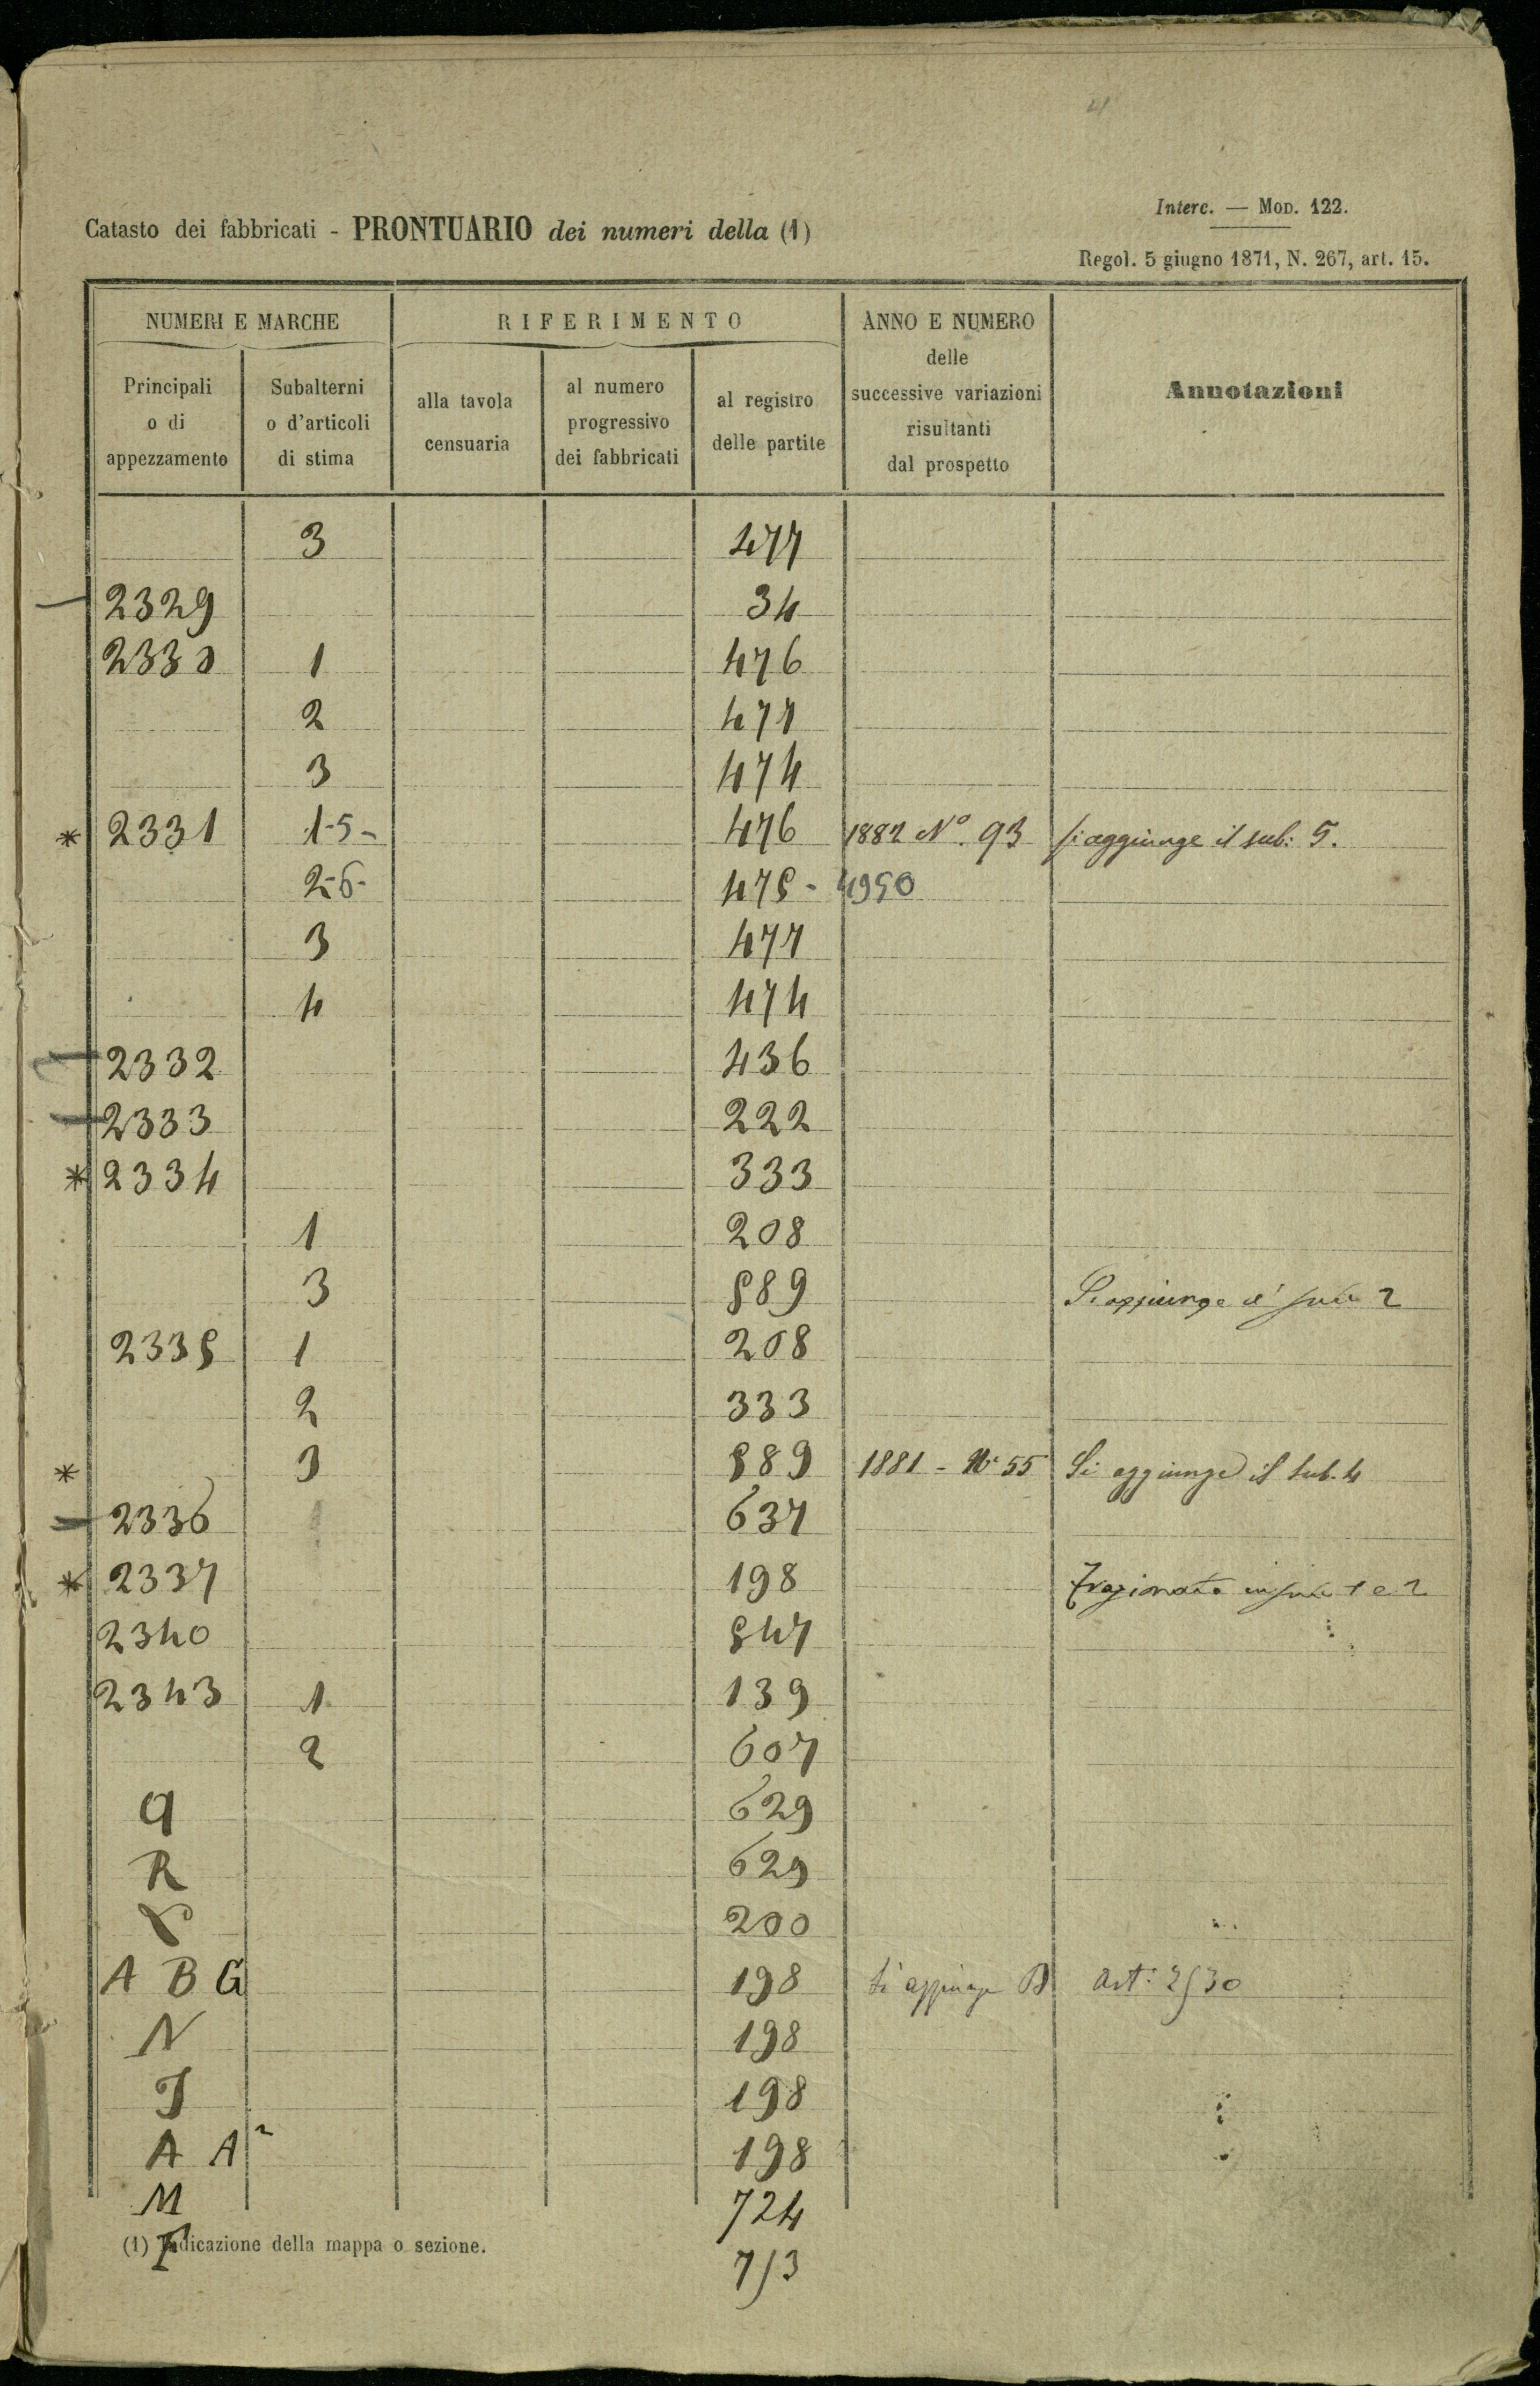 41
Interc. — Mod. 122.
Catasto dei fabbricati - PRONTUARIO dei numeri della (1)
Regol. 5 giugno 1871, N. 267, art. 15.
NUMERI E MARCHE
RIFERIMENTO
ANNO E NUMERO
delle
successive variazioni
risultanti
dal prospetto
Annotazioni
Principali
o di
appezzamento
Subalterni
o d'articoli
di stima
alla tavola
censuaria
al numero
progressivo
dei fabbricati
al registro
delle partite
3 477
2329 34
2330 1 476
2 477
3 474
* 2331 1-5- 476 1882 N° 93 si aggiunge il sub: 5.
2-6- 475 - 4950
3 477
4 474
2332 436
2333 222
* 2334 333
1 208
3 589 Si aggiunge il sub 2
2335 1 208
2 333
* 3 589 1881 - N° 55 Si aggiunge il sub. 4
2336 637
* 2337 198 Frazionato in sub 1 e 2
2340 547
2343 1 139
2 607
Q 629
R 629
200
A B G 198 si aggiunge B Art: 2530
N 198
J 198
A A² 198
M 724
(1) Indicazione della mappa o sezione.
I 713